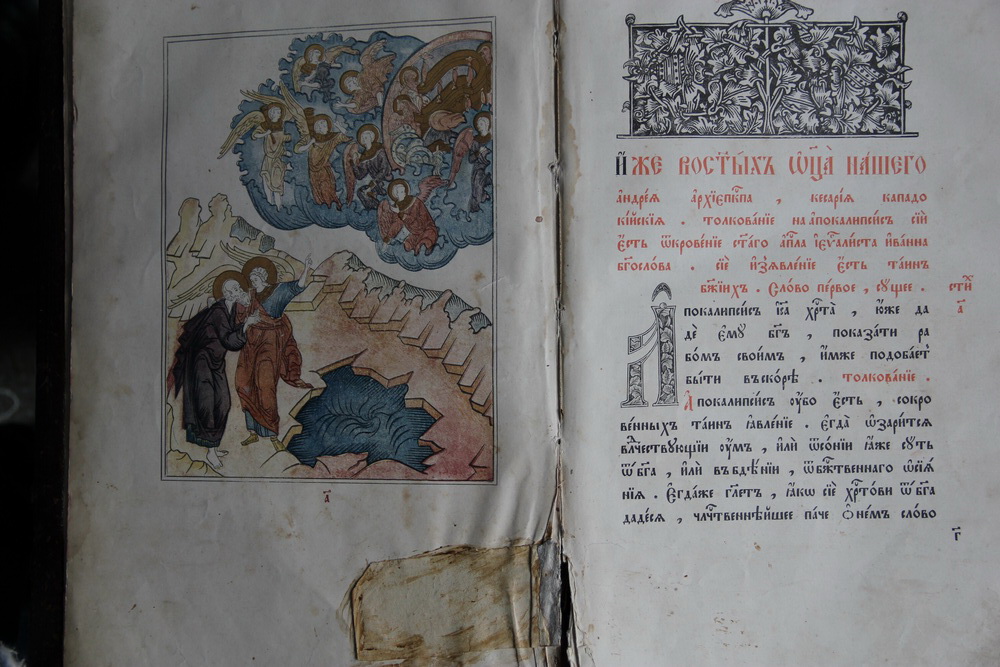 а҃
И҆́же востъ́іхъ ѻ҆ц҃а на́шегѡ
а҆ндре́ѧ а҆рхїєпⷭ҇кпа , кесарі́ѧ кападо
кі́йскїѧ . толкова́нїе на а҆пока́липсисъ сі́й
є҆́сть ѿкрове́нїе ст҃а́гѡ а҆пⷭ҇ла і҆є҆ѵⷢ҇али́ста і҆ѡа́нна
бг҃осло́ва . сїѐ и҆з̾ѧвле́нїе є҆́сть та́инъ
бж҃їихъ . Сло́во пе́рвое , су́щее . стⷯи́
а҃
Апока́липсисъ і҆с҃а хрⷭ҇та̀ , ю҆́же да
дѐ є҆мꙋ̀ бг҃ъ , показа́ти ра
бо́мъ свои́мъ , и҆́мже подоба́етъ
бы́ти въско́рѣ . толкова́нїе .
Апока́липсисъ ᲂу҆́бо є҆́сть , сокро
ве́нныхъ та́инъ ꙗ҆вле́нїе . є҆гда̀ ѡ҆зари́тсѧ
влⷣчествꙋющїи ᲂу҆́мъ , и҆лѝ ѿсо́нїи ꙗ҆́же сꙋ́ть
ѿ бг҃а , и҆лѝ въ бдѣ́нїи , ѿ бжⷭ҇твеннаго ѡ҆сїѧ́
нїѧ . є҆гда́же гл҃етъ , ꙗ҆́кѡ сїѐ хрⷭ҇то́ви ѿ бг҃а
даде́сѧ , чл҃чⷭ҇твеннѣ́йшее па́че ѻ҆ не́мъ сло́во
г҃